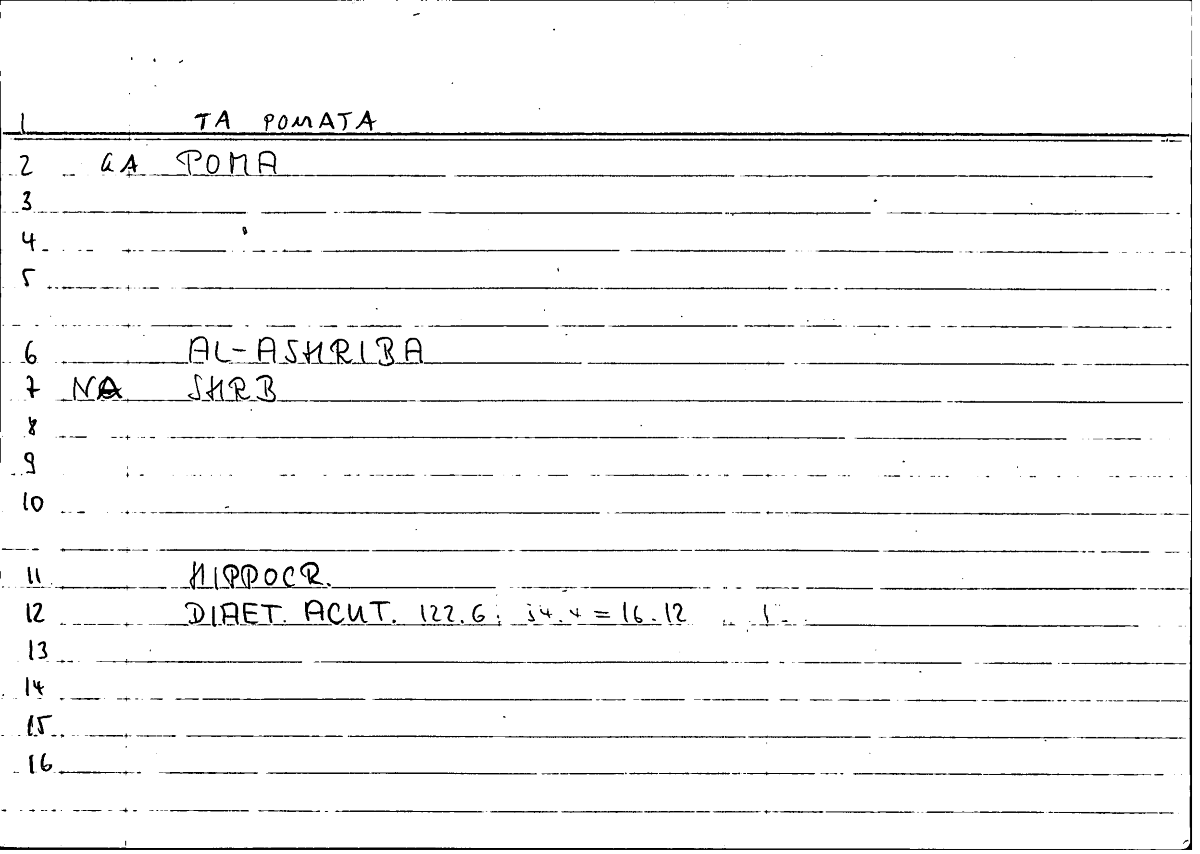 1 TA POMATA
2 GA POMA
3
4
5
6 AL-ASHRIBA
7 NA SHRB
8
9
10
11 HIPPOCR.
12 DIAET. ACUT. 122.6; = 16.12
13
14
15
16